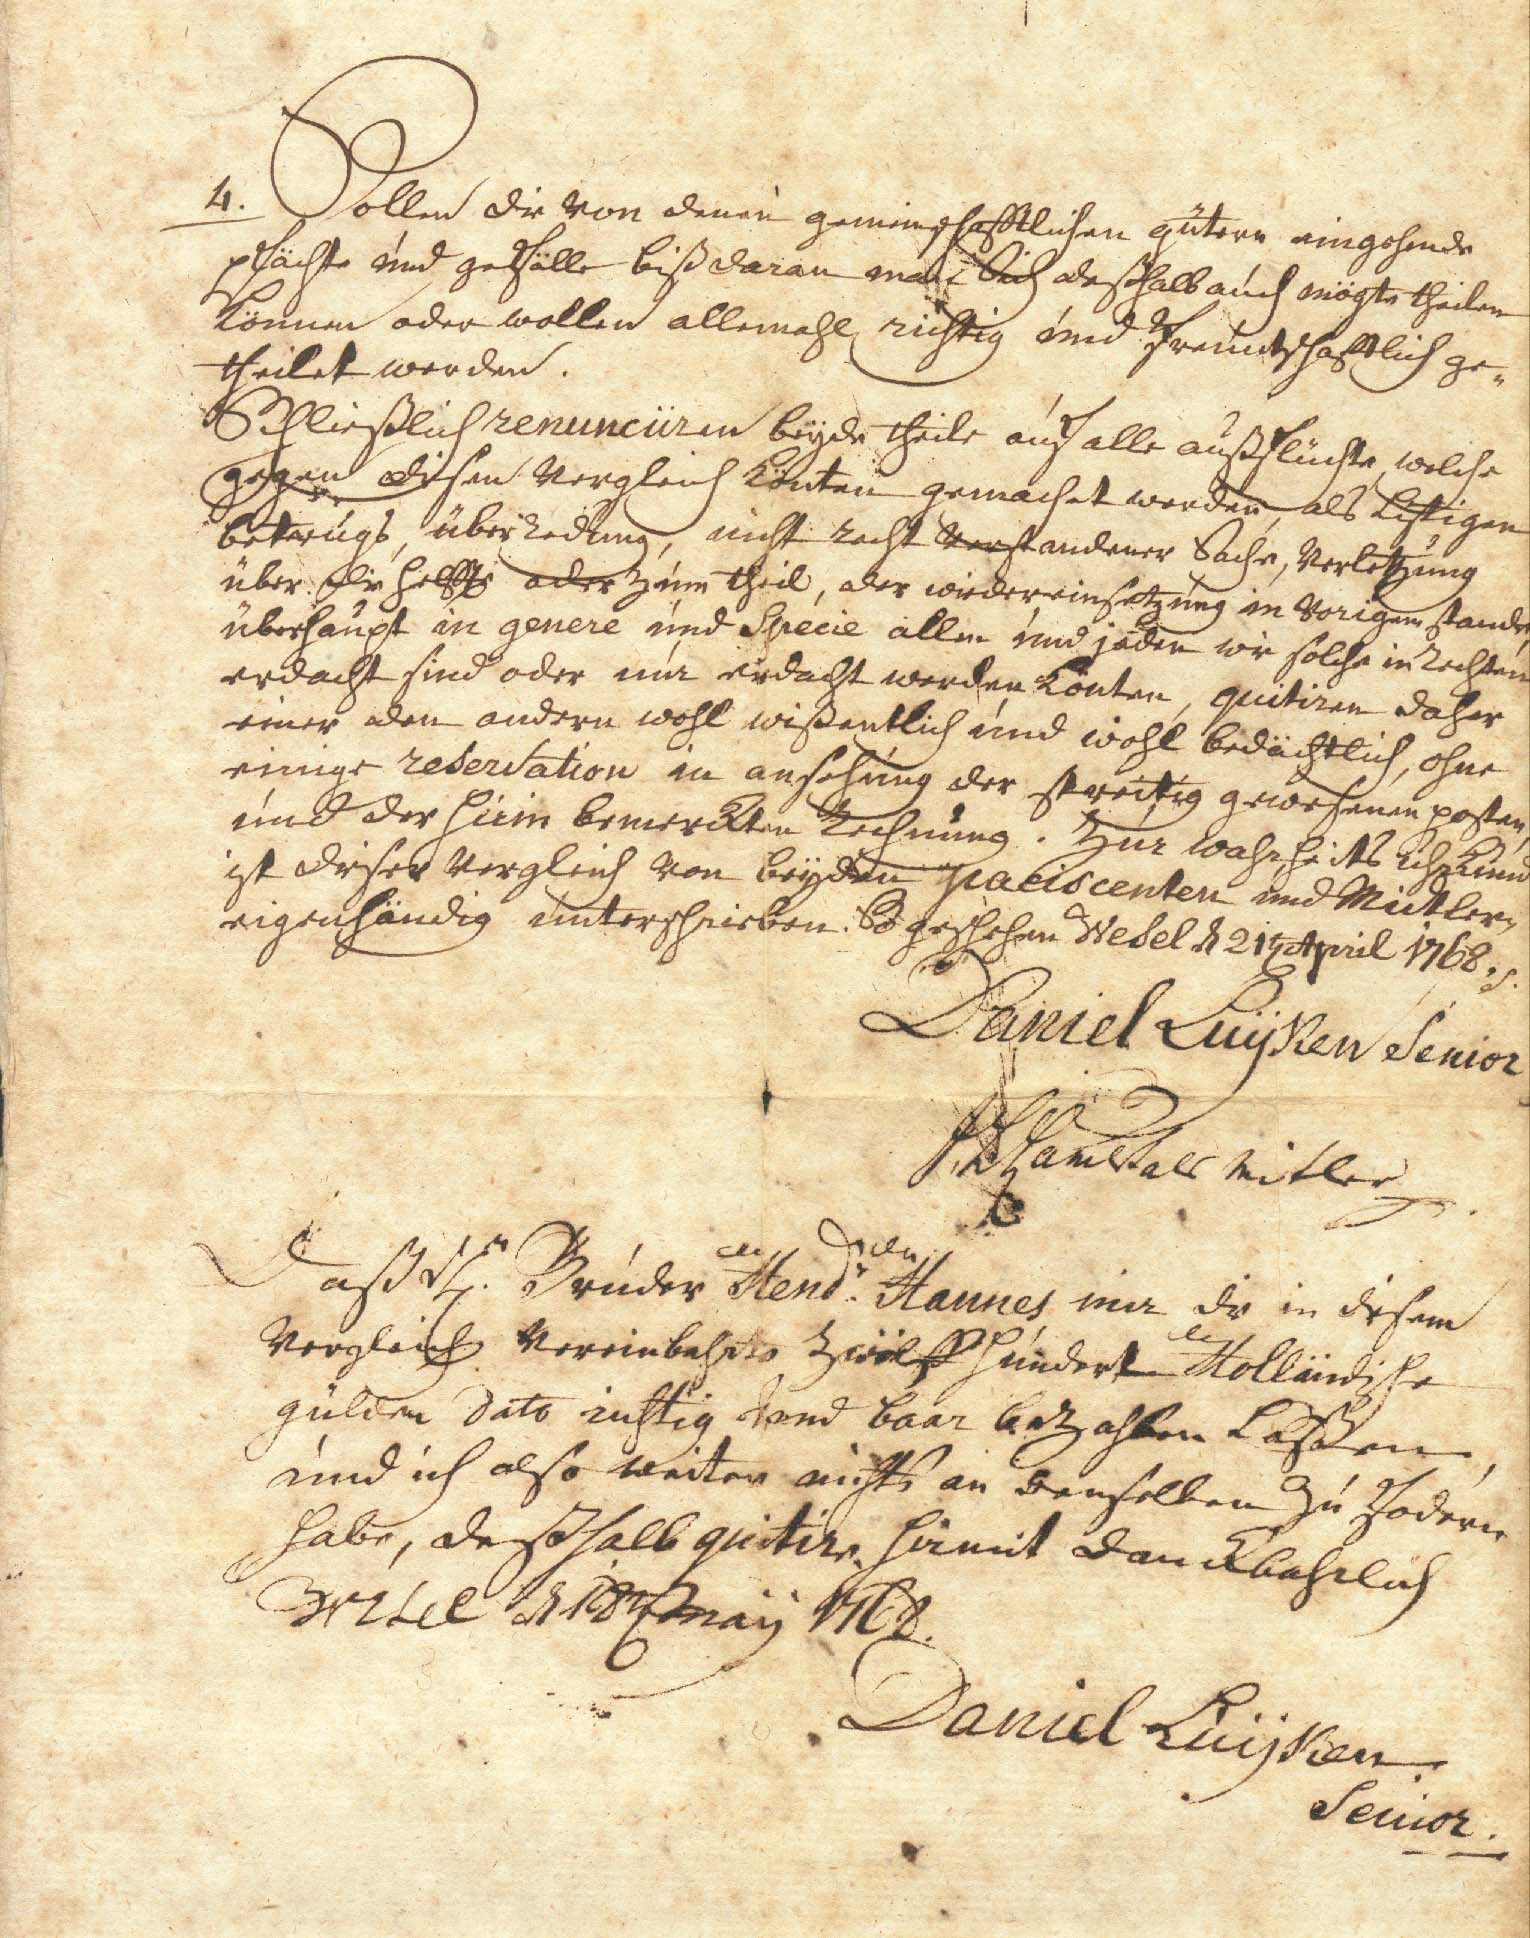 4. Sollen die von denen gemeinschafftlichen gütern eingehende
pfächte und gefälle biß daran man sich deßhalb auch mögte theilen
können oder wollen allemahl richtig und freundschafftlich ge-
theilet werden.
Schließlich renunciiren beyde theile auf alle außflüchte, welche
gegen diesen Vergleich könten gemachet werden, als listigen
betrugs, überredung, nicht recht verstandener Sache, Verletzung
über die helffte oder zum theil, der wiedereinsetzung in vorigen stande,
überhaupt in genere und Specie allen und jeden wie solche in rechten
erdacht sind oder nur erdacht werden könten, quitiren daher
einer den andern wohl wißentlich und wohl bedächtlich, ohne
einige reservation in ansehung der streitig gewesenen posten,
und der hirin bemerckten Rechnung. Zur wahrheits uhrkund
ist dieser Vergleich von beyden paciscenten und Mittler
eigenhändig unterschrieben. So geschehen Wesel d 21t April 1768.
Daniel Luyken Senior
als Mitler
Daß H. Bruder Hend. Hannes mir die in diesem
Vergleich Vereinbahrte Zwölff hundert Holländische
gülden dato richtig und baar bezahlen Laßen,
und ich also weiter nichts an demselben zu fodern
habe, deßhalb quitire hiemit danckbahrlich
Wesel d 18t May 1768.
Daniel Luyken
Senior.